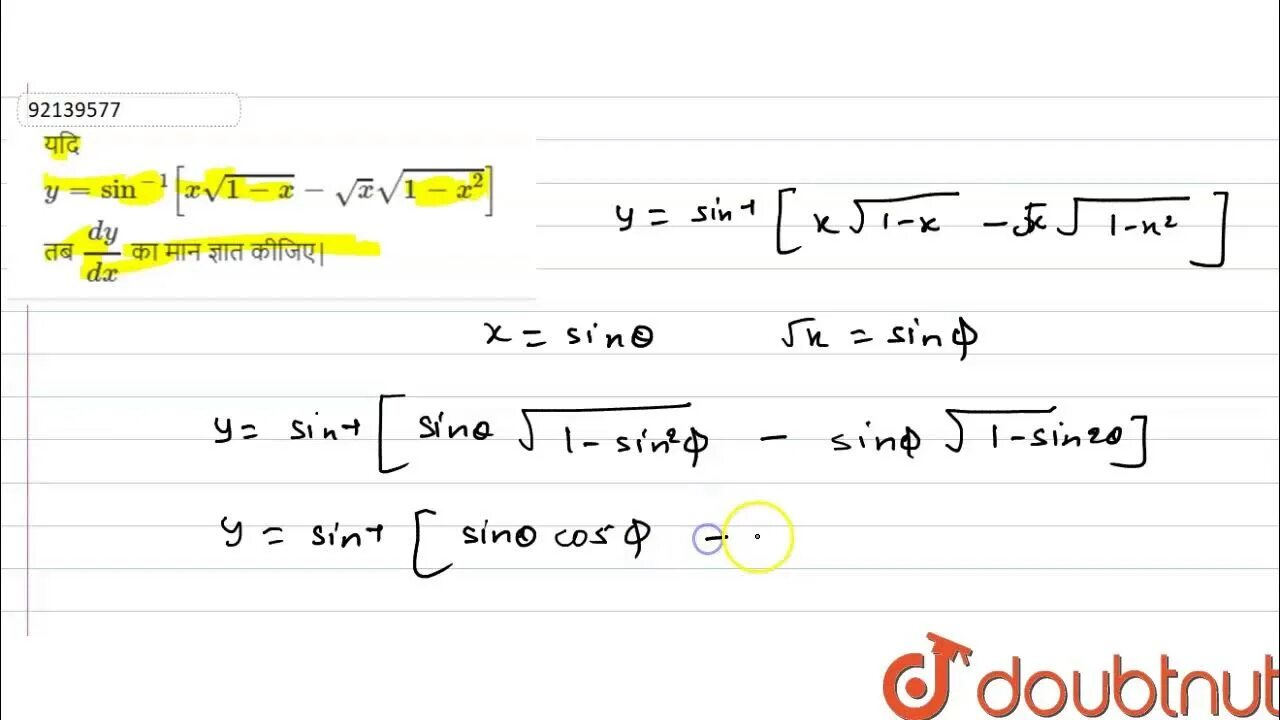 92139577
यदि
y = sin⁻¹[x√(1 − x) − √x√(1 − x²)]
तब dy/dx का मान ज्ञात कीजिए।
y = sin⁻¹[x√(1-x) - √x√(1-x²)]
x = sinθ √x = sinφ
y = sin⁻¹[sinθ√(1-sin²φ) - sinφ√(1-sin²θ)]
y = sin⁻¹[sinθ cosφ -
doubtnut